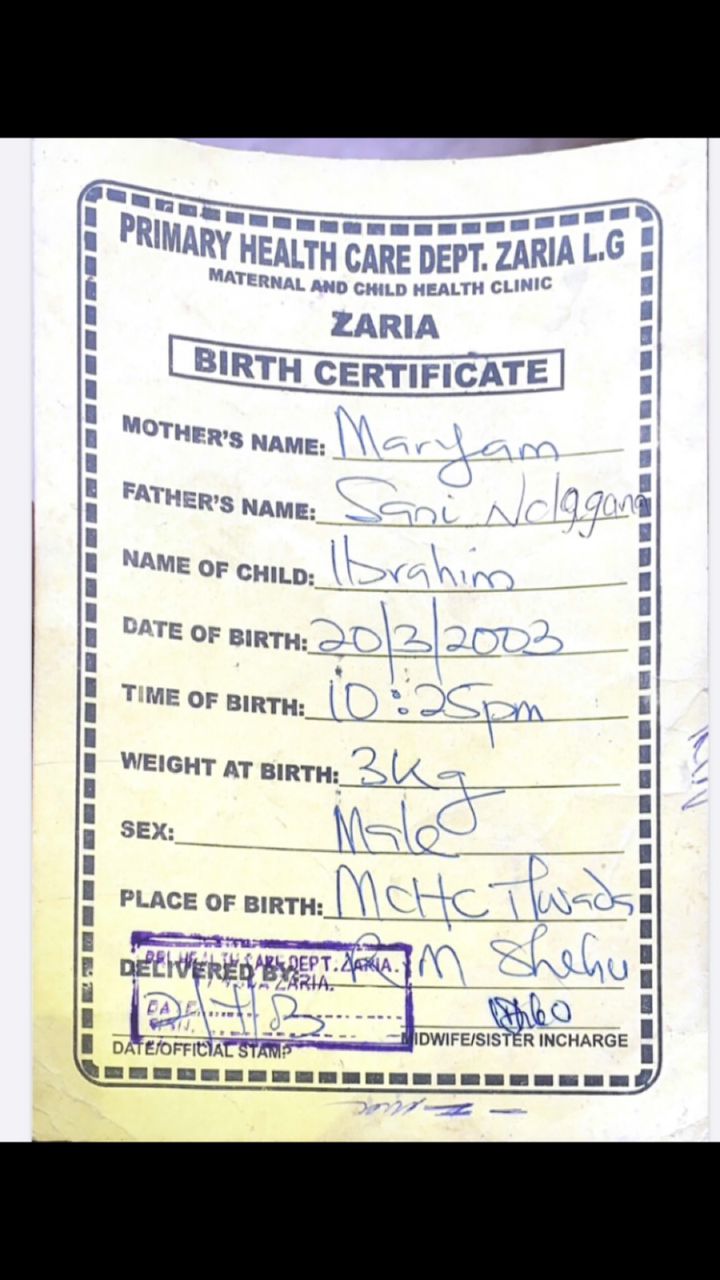 PRIMARY HEALTH CARE DEPT. ZARIA L.G
MATERNAL AND CHILD HEALTH CLINIC
ZARIA
BIRTH CERTIFICATE
MOTHER'S NAME: Maryam
FATHER'S NAME: Sani
NAME OF CHILD: Ibrahim
DATE OF BIRTH: 20/3/2003
TIME OF BIRTH: 10:25pm
WEIGHT AT BIRTH: 3kg
SEX: Male
PLACE OF BIRTH: MCHC
DELIVERED BY: R M Shehu
HEALTH CARE DEPT. ZARIA.
ZARIA.
DATE
SIGN.
MIDWIFE/SISTER INCHARGE
DATE/OFFICIAL STAMP